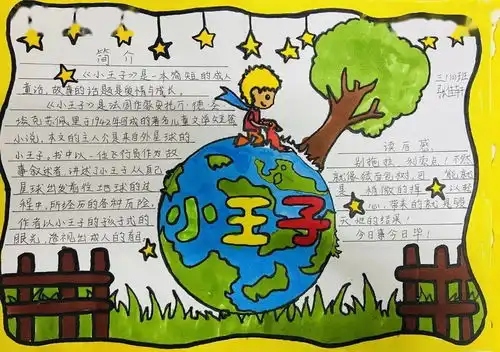 简介
《小王子》是一本简短的成人
童话,故事的话题是爱情与成长。
《小王子》是法国作家安托万·德·圣
埃克苏佩里于1942年写成的著名儿童文学短篇
小说,本文的主人公是来自外星球的
小王子,书中以一位飞行员作为故
事叙述者,讲述了小王子从自己
星球出发前往地球的过
程中,所经历的各种历险,
作者以小王子的孩子式的
眼光,透视出成人的
三(1)班
读后感
别拖拉,别卖呆!不然
就像猴面包树
是
心,带来的就是毁
灭性的结果!
今日事今日毕!
小王子